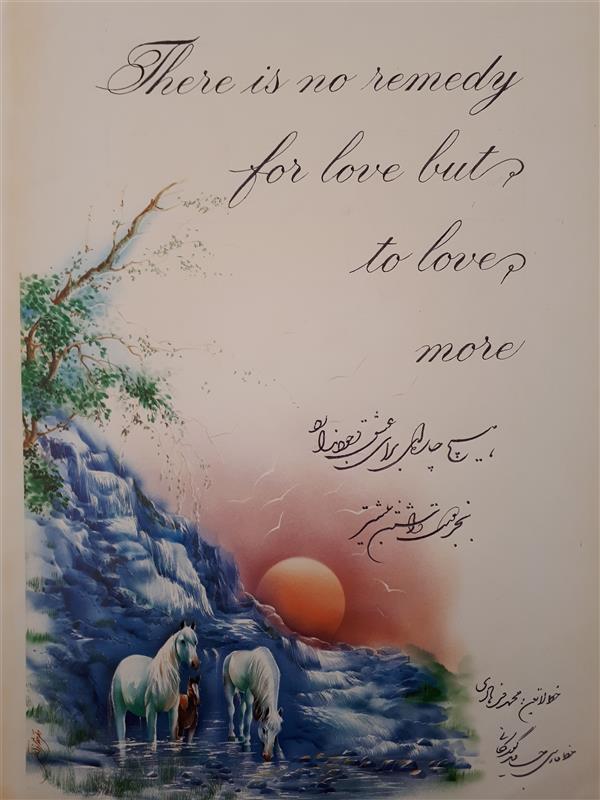 There is no remedy
for love but
to love
more
هیچ چاره‌ای برای عشق وجود ندارد
بجز دوست داشتن بیشتر
خط لاتین: محمد فرهادی
خط فارسی: